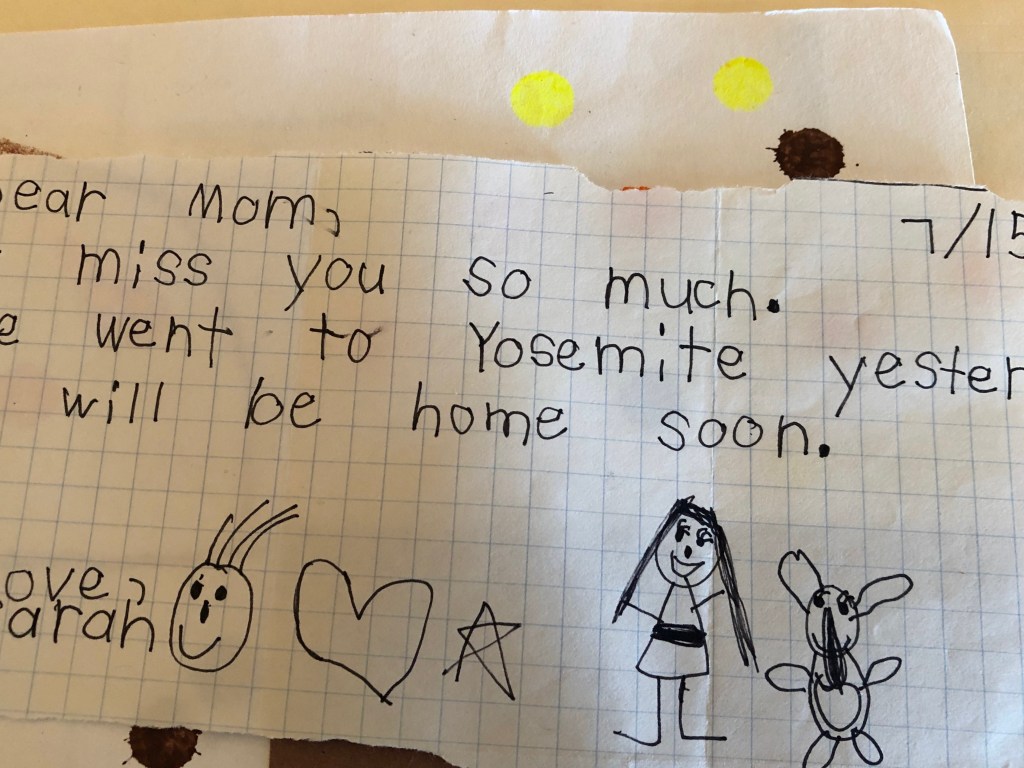 ear Mom,
7/15
miss you so much.
e went to Yosemite yester
will be home soon.
ove,
arah